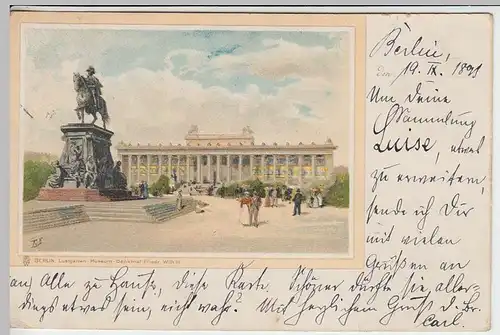 Berlin,
den 19. IX. 1899
Um Deine
Sammlung
Luise, etwas
zu erweitern,
sende ich Dir
mit vielen
Grüßen an
BERLIN. Lustgarten. Museum. Denkmal Friedr. Wilh. III
an Alle zu Hause, diese Karte. Schöner dürfte sie aller-
dings etwas sein, nicht wahr? Mit herzlichem Gruß d. Br.
Carl.